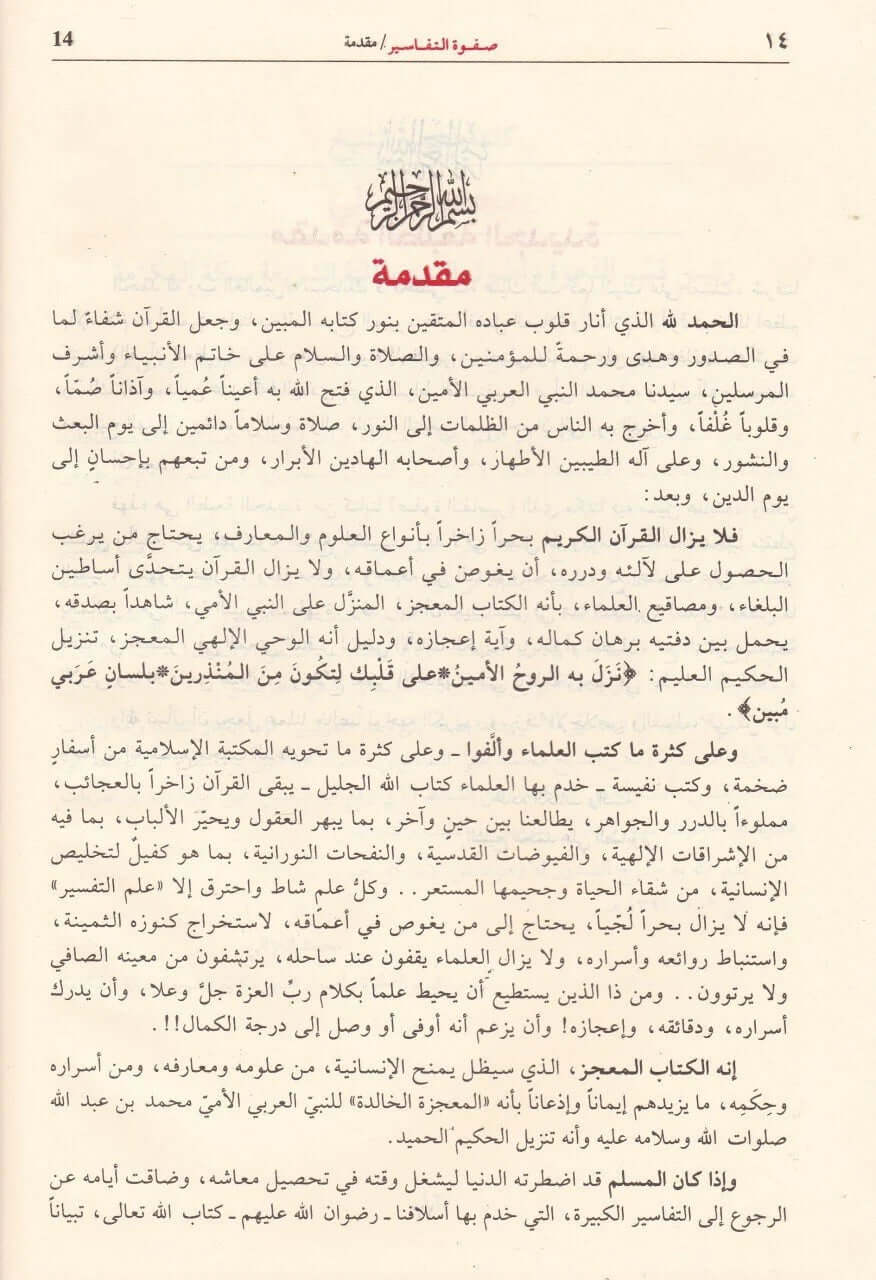 ١٤ صفوة التفاسير/ مقدمة 14
بسم الله الرحمن الرحيم
مقدمة
الحمد لله الذي أنار قلوب عباده المتقين بنور كتابه المبين، وجعل القرآن شفاءً لما
في الصدور وهدى ورحمةً للمؤمنين، والصلاة والسلام على خاتم الأنبياء وأشرف
المرسلين، سيدنا محمد النبي العربي الأمين، الذي فتح الله به أعيناً عُمياً، وآذاناً صُمّاً،
وقلوباً غُلْفاً، وأخرج به الناس من الظلمات إلى النور، صلاة وسلاماً دائمين إلى يوم البعث
والنشور، وعلى آله الطيبين الأطهار، وأصحابه الهادين الأبرار، ومن تبعهم بإحسانٍ إلى
يوم الدين، وبعد:
فلا يزال القرآن الكريم بحراً زاخراً بأنواع العلوم والمعارف، يحتاج من يرغب
الحصول على لآلئه ودرره، أن يغوص في أعماقه، ولا يزال القرآن يتحدَّى أساطين
البلغاء، ومصاقيع العلماء، بأنه الكتاب المعجز، المنزَّل على النبي الأمي، شاهداً بصدقه،
يحمل بين دفتيه برهان كماله، وآية إعجازه، ودليل أنه الوحي الإلهي المعجز، تنزيل
الحكيم العليم: ﴿نَزَلَ به الروحُ الأمينُ*على قَلْبِك لِتكُونَ مِنَ المُنْذِرينَ*بلسانٍ عَرَبي
مُبين﴾.
وعلى كثرة ما كتب العلماء وألَّفوا ـ وعلى كثرة ما تحويه المكتبة الإسلامية من أسفارٍ
ضخمة، وكتب نفيسة ـ خدم بها العلماء كتاب الله الجليل ـ يبقى القرآن زاخراً بالعجائب،
مملوءاً بالدرر والجواهر، يطالعنا بين حينٍ وآخر، بما يبهر العقول ويحيّر الألباب، بما فيه
من الإشراقات الإلهية، والفيوضات القدسية، والنفحات النورانية، بما هو كفيلٌ لتخليص
الإنسانية، من شقاء الحياة وجحيمها المستعر.. وكلُّ علم شاط واحترق إلا «علم التفسير»
فإنه لا يزال بحراً لُجّياً، يحتاج إلى من يغوص في أعماقه، لاستخراج كنوزه الثمينة،
واستنباط روائعه وأسراره، ولا يزال العلماء يقفون عند ساحله، يرتشفون من معينه الصافي
ولا يرتوون.. ومن ذا الذين يستطيع أن يحيط علماً بكلام ربِّ العزة جلَّ وعلا، وأن يدرك
أسراره، ودقائقه، وإعجازه! وأن يزعم أنه أوفى أو وصل إلى درجة الكمال!!.
إنه الكتاب المعجز، الذي سيظل يمنح الإنسانية، من علومه ومعارفه، ومن أسراره
وحِكَمِه، ما يزيدهم إيماناً وإذعاناً بأنه «المعجزة الخالدة» للنبيّ العربي الأميّ محمد بن عبد الله
صلوات الله وسلامه عليه وأنه تنزيل الحكيم الحميد.
وإذا كان المسلم قد اضطرته الدنيا ليشغل وقته في تحصيل معاشه، وضاقت أيامه عن
الرجوع إلى التفاسير الكبيرة، التي خدم بها أسلافنا ـ رضوان الله عليهم ـ كتاب الله تعالى، تبياناً